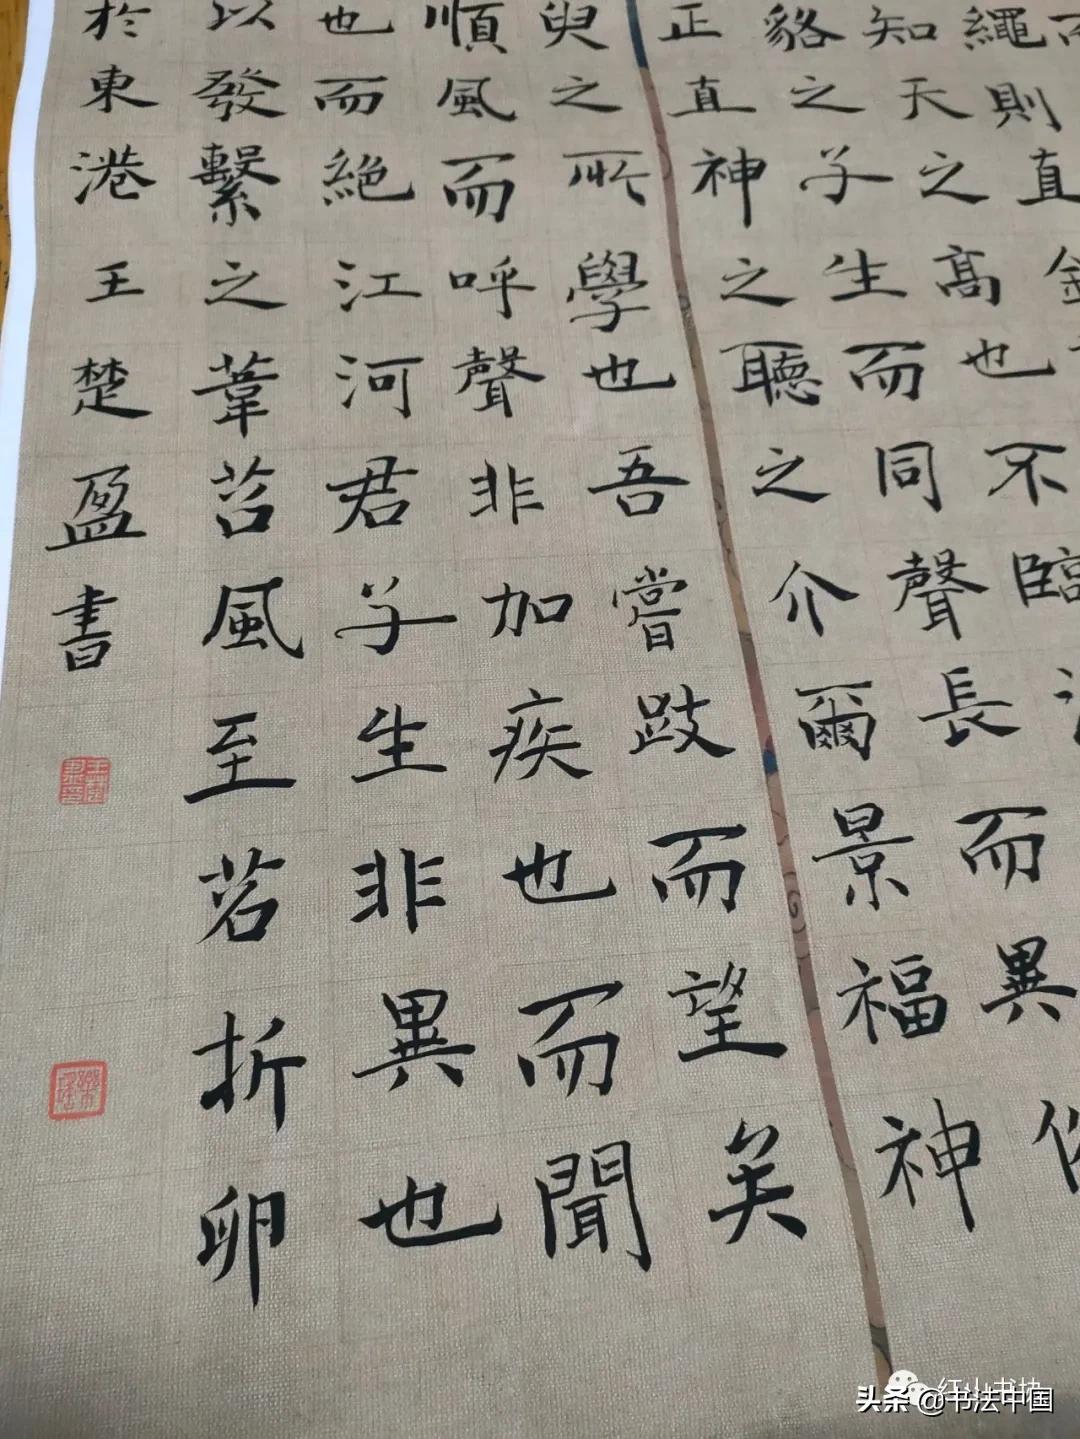 繩則直
知天之高也不臨
貉之子生而同聲長而異俗
正直神之聽之介爾景福神
臾之所學也吾嘗跂而望矣
順風而呼聲非加疾也而聞
也而絕江河君子生非異也
以發繫之葦苕風至苕折卵
於東港王楚盈書
红山书协
头条 @书法中国